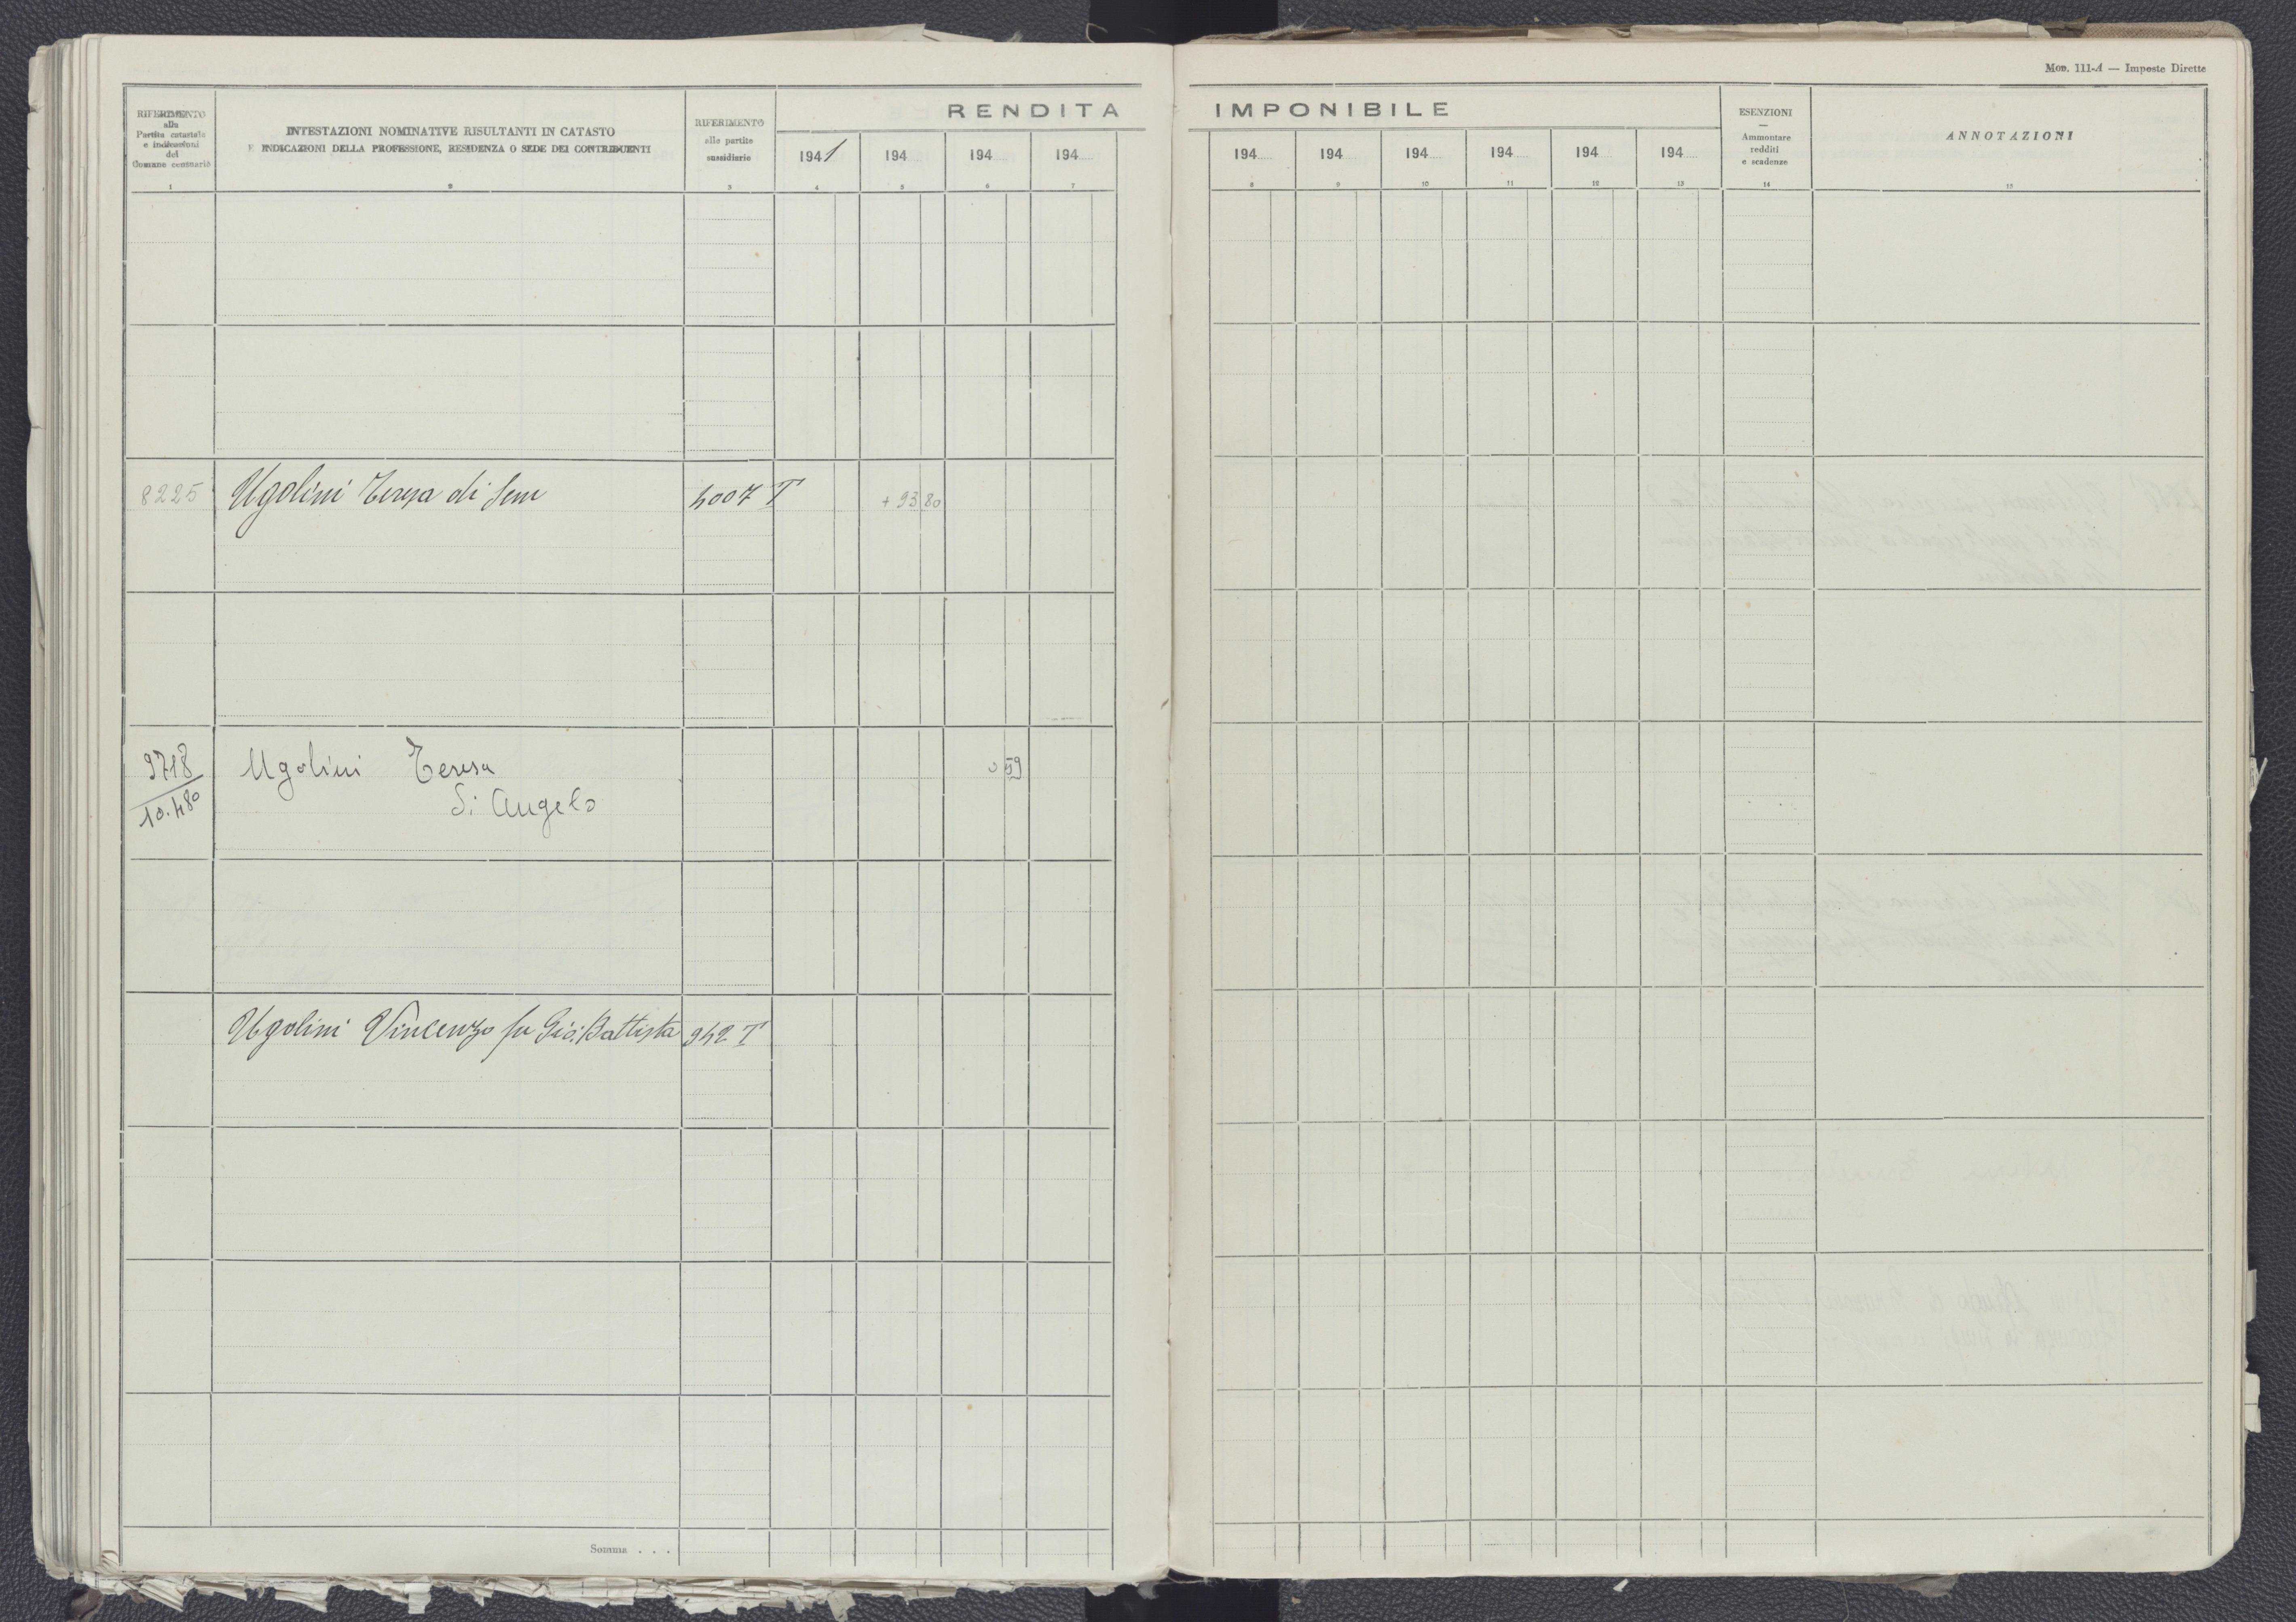 Mod. 111-A — Imposte Dirette
RIFERIMENTO
alla
Partita catastale
e indicazioni
del
Comune censuario
INTESTAZIONI NOMINATIVE RISULTANTI IN CATASTO
E INDICAZIONI DELLA PROFESSIONE, RESIDENZA O SEDE DEI CONTRIBUENTI
RIFERIMENTO
alle partite
sussidiarie
RENDITA IMPONIBILE
1941 194 194 194
194 194 194 194 194 194
ESENZIONI
—
Ammontare
redditi
e scadenze
ANNOTAZIONI
1 2 3 4 5 6 7 8 9 10 11 12 13 14 15
8225 Ugolini Teresa di 4007 T + 93 80
9718 Ugolini Teresa 0 59
10.480 di Angelo
Ugolini Vincenzo fu Gio: Battista 942 T
Somma . . .